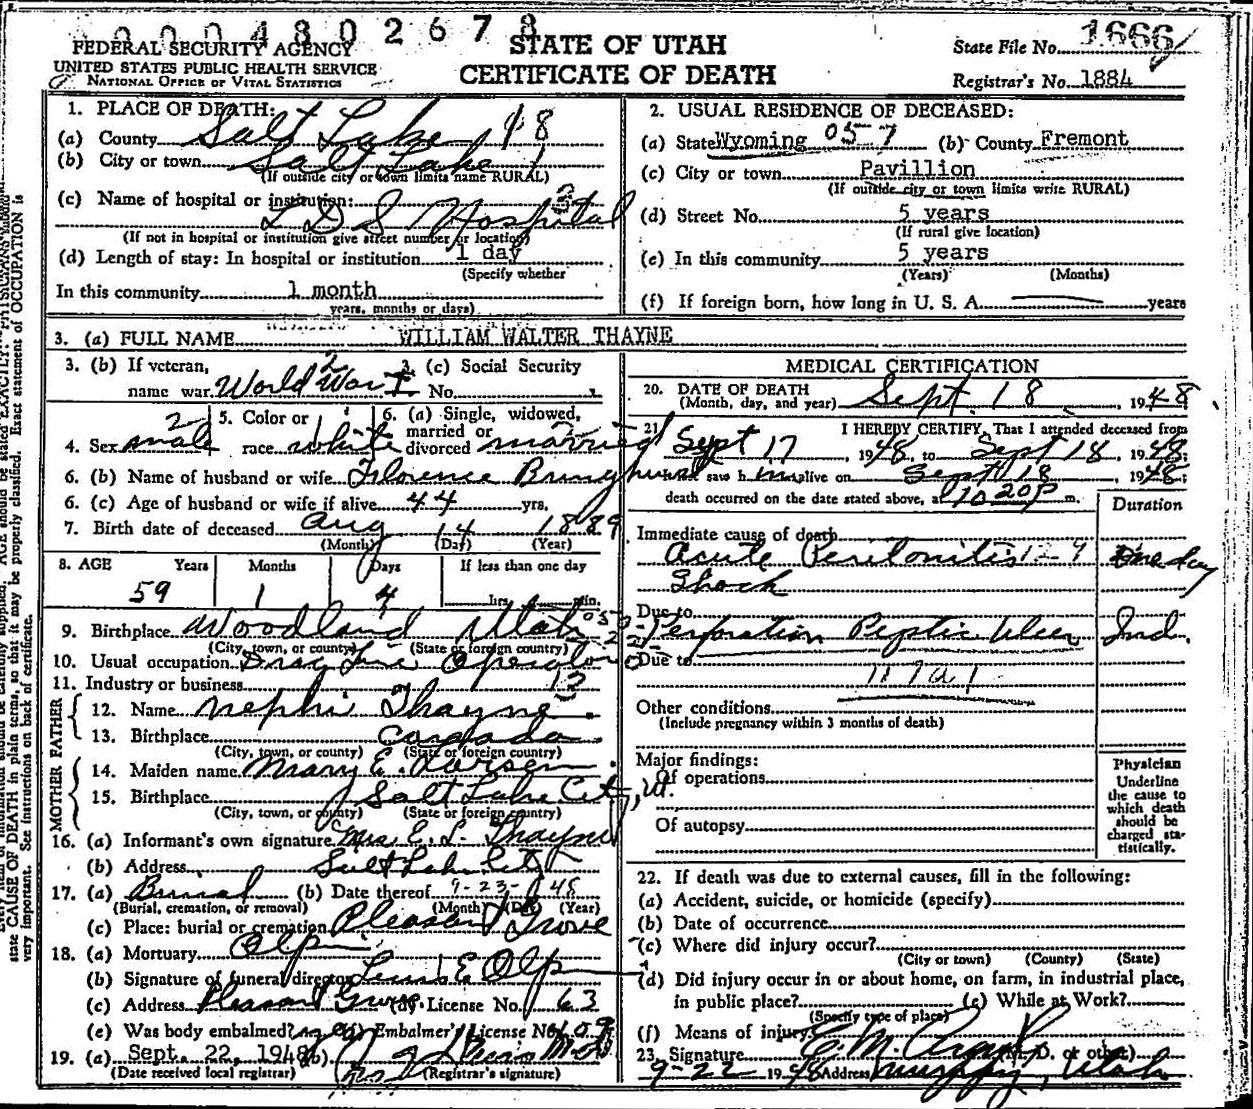 0000480 2678
FEDERAL SECURITY AGENCY
UNITED STATES PUBLIC HEALTH SERVICE
NATIONAL OFFICE OF VITAL STATISTICS
STATE OF UTAH
CERTIFICATE OF DEATH
State File No. 1666
Registrar's No. 1884
1. PLACE OF DEATH:
(a) County Salt Lake 18
(b) City or town Salt Lake 1
(If outside city or town limits name RURAL)
(c) Name of hospital or institution:
L D S Hospital
(If not in hospital or institution give street number or location)
(d) Length of stay: In hospital or institution 1 day
(Specify whether
In this community 1 month
years, months or days)
2. USUAL RESIDENCE OF DECEASED:
(a) State Wyoming 05-7 (b) County Fremont
(c) City or town Pavillion
(If outside city or town limits write RURAL)
(d) Street No. 5 years
(If rural give location)
(e) In this community 5 years
(Years) (Months)
(f) If foreign born, how long in U. S. A. years
3. (a) FULL NAME WILLIAM WALTER THAYNE
3. (b) If veteran, name war World War I 2
3. (c) Social Security No.
4. Sex male 2
5. Color or race white 1
6. (a) Single, widowed, married or divorced married
6. (b) Name of husband or wife Florence Bringhurst
6. (c) Age of husband or wife if alive 44 yrs.
7. Birth date of deceased Aug 14 1889
(Month) (Day) (Year)
8. AGE Years Months Days If less than one day
59 1 4 hrs. min.
9. Birthplace Woodland Utah
(City, town, or county) (State or foreign country)
10. Usual occupation Drag Line Operator
11. Industry or business
FATHER
12. Name Nephi Thayne
13. Birthplace Canada
(City, town, or county) (State or foreign country)
MOTHER
14. Maiden name Mary E. Larsen
15. Birthplace Salt Lake City, Ut.
(City, town, or county) (State or foreign country)
16. (a) Informant's own signature Mrs E. L. Thayne
(b) Address Salt Lake City
17. (a) Burial (b) Date thereof 9-23-48
(Burial, cremation, or removal) (Month) (Day) (Year)
(c) Place: burial or cremation Pleasant Grove
18. (a) Mortuary Olpin
(b) Signature of funeral director E Olpin
(c) Address Pleasant Grove (d) License No. 63
(e) Was body embalmed? (f) Embalmer's License No. 409
19. (a) Sept. 22, 1948 (b)
(Date received local registrar) (Registrar's signature)
MEDICAL CERTIFICATION
20. DATE OF DEATH
(Month, day, and year) Sept. 18, 1948
21. I HEREBY CERTIFY, That I attended deceased from
Sept 17, 1948, to Sept 18, 1948;
last saw him alive on Sept 18, 1948;
death occurred on the date stated above, at 10 20 P m.
Duration
Immediate cause of death
Acute Peritonitis One day
Shock
Due to
Perforation Peptic Ulcer Ind.
Due to
Other conditions
(Include pregnancy within 3 months of death)
Major findings:
Of operations
Of autopsy
Physician
Underline
the cause to
which death
should be
charged sta-
tistically.
22. If death was due to external causes, fill in the following:
(a) Accident, suicide, or homicide (specify)
(b) Date of occurrence
(c) Where did injury occur?
(City or town) (County) (State)
(d) Did injury occur in or about home, on farm, in industrial place,
in public place? (e) While at Work?
(Specify type of place)
(f) Means of injury
23. Signature (M. D. or other)
9-22 1948 Address Murray, Utah
state CAUSE OF DEATH in plain terms, so that it may be properly classified. Exact statement of OCCUPATION is
very important. See instructions on back of certificate.